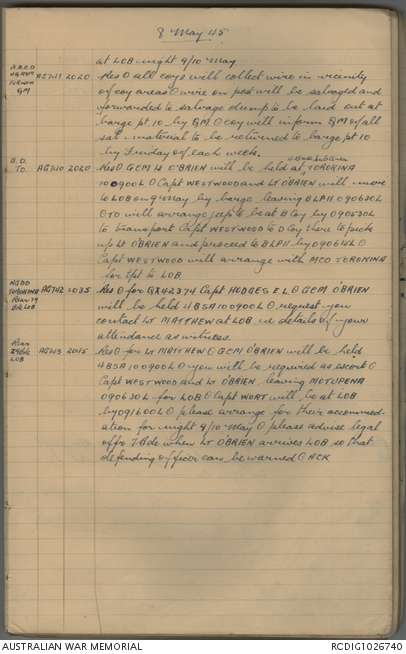 8 May 45
at LOB night 9/10 May
A B C D
QM
AG 741 2020 Res O all coys will collect wire in vicinity
of coy areas O wire on post will be salvaged and
forwarded to salvage dump to be laid out at
barge pt 10 by QM O coy will inform QM of all
sal material to be returned to barge pt 10
by Sunday of each week.
B. D.
TO. AG740 2020 Res O GCM Lt O'BRIEN will be held at TOROKINA
100900L O Capt WESTWOOD and Lt O'BRIEN will move
to LOB on 9 May by barge leaving BLA11 090630L
O TO will arrange jeep to be at B Coy by 090530L
to transport Capt WESTWOOD to D Coy there to pick
up Lt O'BRIEN and proceed to BLP11 by 090614L O
Capt WESTWOOD will arrange with MCO TOROKINA
for tpt to LOB
TOROKINA
LOB
AG742 1035 Res O for QX42374 Capt HODGES E L O GCM O'BRIEN
will be held 4BSA 100900L O request you
contact Lt MATTHEW at LOB in details of your
attendance as witness.
LOB
AG743 2015 Res O for Lt MATTHEW O GCM O'BRIEN will be held
4BSA 100900L O you will be required as escort O
Capt WESTWOOD and Lt O'BRIEN leaving MOTUPENA
090630L for LOB O Capt WORT will be at LOB
by 091600L O please arrange for their accommod-
ation for night 9/10 May O please advise legal
offr 7 Bde when Lt O'BRIEN arrives LOB so that
defending officer can be warned O ACK
AUSTRALIAN WAR MEMORIAL
RCDIG1026740